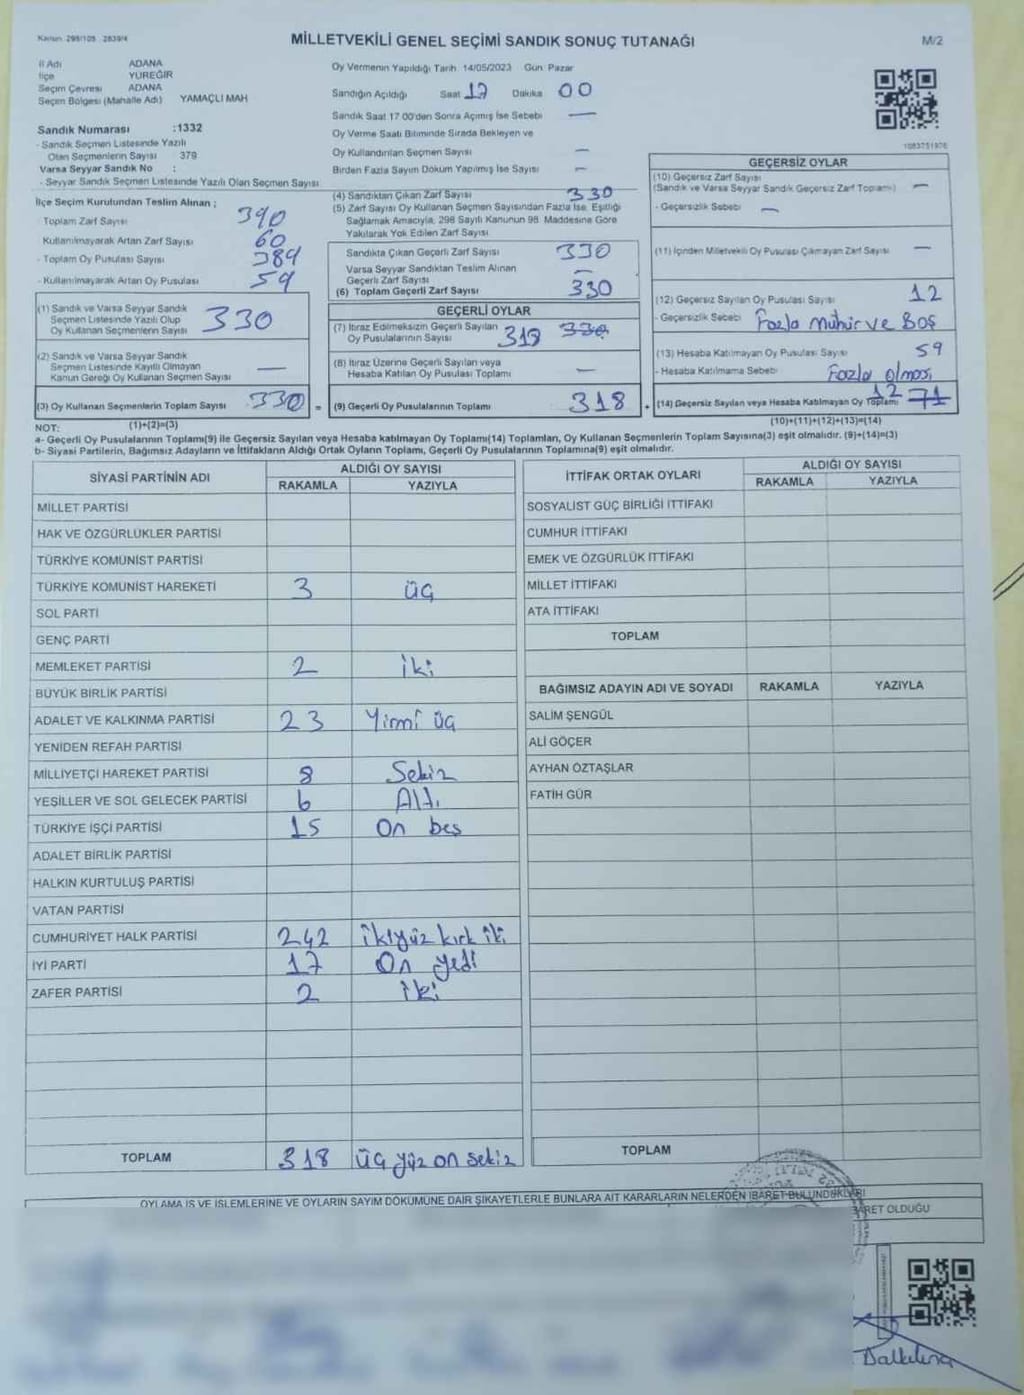 Kanun 298/105 2839/4
MİLLETVEKİLİ GENEL SEÇİMİ SANDIK SONUÇ TUTANAĞI
M/2
İl Adı ADANA
İlçe YÜREĞİR
Seçim Çevresi ADANA
Seçim Bölgesi (Mahalle Adı) YAMAÇLI MAH
Sandık Numarası :1332
- Sandık Seçmen Listesinde Yazılı
Olan Seçmenlerin Sayısı 379
Varsa Seyyar Sandık No :
- Seyyar Sandık Seçmen Listesinde Yazılı Olan Seçmen Sayısı
İlçe Seçim Kurulundan Teslim Alınan ;
- Toplam Zarf Sayısı 390
Kullanılmayarak Artan Zarf Sayısı 60
- Toplam Oy Pusulası Sayısı 389
- Kullanılmayarak Artan Oy Pusulası 59
(1) Sandık ve Varsa Seyyar Sandık
Seçmen Listesinde Yazılı Olup
Oy Kullanan Seçmenlerin Sayısı 330
(2) Sandık ve Varsa Seyyar Sandık
Seçmen Listesinde Kayıtlı Olmayan
Kanun Gereği Oy Kullanan Seçmen Sayısı —
(3) Oy Kullanan Seçmenlerin Toplam Sayısı 330 =
(1)+(2)=(3)
Oy Vermenin Yapıldığı Tarih 14/05/2023 Gün Pazar
Sandığın Açıldığı Saat 17 Dakika 00
Sandık Saat 17 00'den Sonra Açımış İse Sebebi —
Oy Verme Saati Bitiminde Sırada Bekleyen ve
Oy Kullandırılan Seçmen Sayısı —
Birden Fazla Sayım Döküm Yapılmış İse Sayısı —
(4) Sandıktan Çıkan Zarf Sayısı 330
(5) Zarf Sayısı Oy Kullanan Seçmen Sayısından Fazla İse, Eşitliği
Sağlamak Amacıyla, 298 Sayılı Kanunun 98. Maddesine Göre
Yakılarak Yok Edilen Zarf Sayısı
Sandıkta Çıkan Geçerli Zarf Sayısı 330
Varsa Seyyar Sandıktan Teslim Alınan
Geçerli Zarf Sayısı —
(6) Toplam Geçerli Zarf Sayısı 330
GEÇERLİ OYLAR
(7) İtiraz Edilmeksizin Geçerli Sayılan
Oy Pusulalarının Sayısı 318 330
(8) İtiraz Üzerine Geçerli Sayılan veya
Hesaba Katılan Oy Pusulası Toplamı —
(9) Geçerli Oy Pusulalarının Toplamı 318 +
1083751976
GEÇERSİZ OYLAR
(10) Geçersiz Zarf Sayısı
(Sandık ve Varsa Seyyar Sandık Geçersiz Zarf Toplamı) —
- Geçersizlik Sebebi —
(11) İçinden Milletvekili Oy Pusulası Çıkmayan Zarf Sayısı —
(12) Geçersiz Sayılan Oy Pusulası Sayısı 12
- Geçersizlik Sebebi Fazla Mühür ve Boş
(13) Hesaba Katılmayan Oy Pusulası Sayısı 59
- Hesaba Katılmama Sebebi Fazla olması
(14) Geçersiz Sayılan veya Hesaba Katılmayan Oy Toplamı 12 71
(10)+(11)+(12)+(13)=(14)
NOT:
a- Geçerli Oy Pusulalarının Toplamı(9) ile Geçersiz Sayılan veya Hesaba katılmayan Oy Toplamı(14) Toplamları, Oy Kullanan Seçmenlerin Toplam Sayısına(3) eşit olmalıdır. (9)+(14)=(3)
b- Siyasi Partilerin, Bağımsız Adayların ve İttifakların Aldığı Ortak Oyların Toplamı, Geçerli Oy Pusulalarının Toplamına(9) eşit olmalıdır.
SİYASİ PARTİNİN ADI ALDIĞI OY SAYISI
RAKAMLA YAZIYLA
MİLLET PARTİSİ
HAK VE ÖZGÜRLÜKLER PARTİSİ
TÜRKİYE KOMÜNİST PARTİSİ
TÜRKİYE KOMÜNİST HAREKETİ 3 üç
SOL PARTİ
GENÇ PARTİ
MEMLEKET PARTİSİ 2 iki
BÜYÜK BİRLİK PARTİSİ
ADALET VE KALKINMA PARTİSİ 23 Yirmi üç
YENİDEN REFAH PARTİSİ
MİLLİYETÇİ HAREKET PARTİSİ 8 Sekiz
YEŞİLLER VE SOL GELECEK PARTİSİ 6 Altı
TÜRKİYE İŞÇİ PARTİSİ 15 On beş
ADALET BİRLİK PARTİSİ
HALKIN KURTULUŞ PARTİSİ
VATAN PARTİSİ
CUMHURİYET HALK PARTİSİ 242 ikiyüz kırk iki
İYİ PARTİ 17 On yedi
ZAFER PARTİSİ 2 iki
TOPLAM 318 üç yüz on sekiz
İTTİFAK ORTAK OYLARI ALDIĞI OY SAYISI
RAKAMLA YAZIYLA
SOSYALİST GÜÇ BİRLİĞİ İTTİFAKI
CUMHUR İTTİFAKI
EMEK VE ÖZGÜRLÜK İTTİFAKI
MİLLET İTTİFAKI
ATA İTTİFAKI
TOPLAM
BAĞIMSIZ ADAYIN ADI VE SOYADI RAKAMLA YAZIYLA
SALİM ŞENGÜL
ALİ GÖÇER
AYHAN ÖZTAŞLAR
FATİH GÜR
TOPLAM
OYLAMA İŞ VE İŞLEMLERİNE VE OYLARIN SAYIM DÖKÜMÜNE DAİR ŞİKAYETLERLE BUNLARA AİT KARARLARIN NELERDEN İBARET BULUNDUKLARI
BARET OLDUĞU